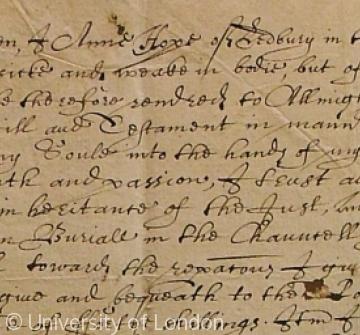 en, I Anne Hope of Ledbury in t
sicke and weake in bodie, but of
e therefore rendred to Allmigh
ill and Testament in mann
my Soule into the handς of my
ath and passion, I trust a
inheritance of the Just, an
n Buriall in the Chauncell
towardς the repatons I giv
give and bequeath to the Po
shillings. Itm I
© University of London